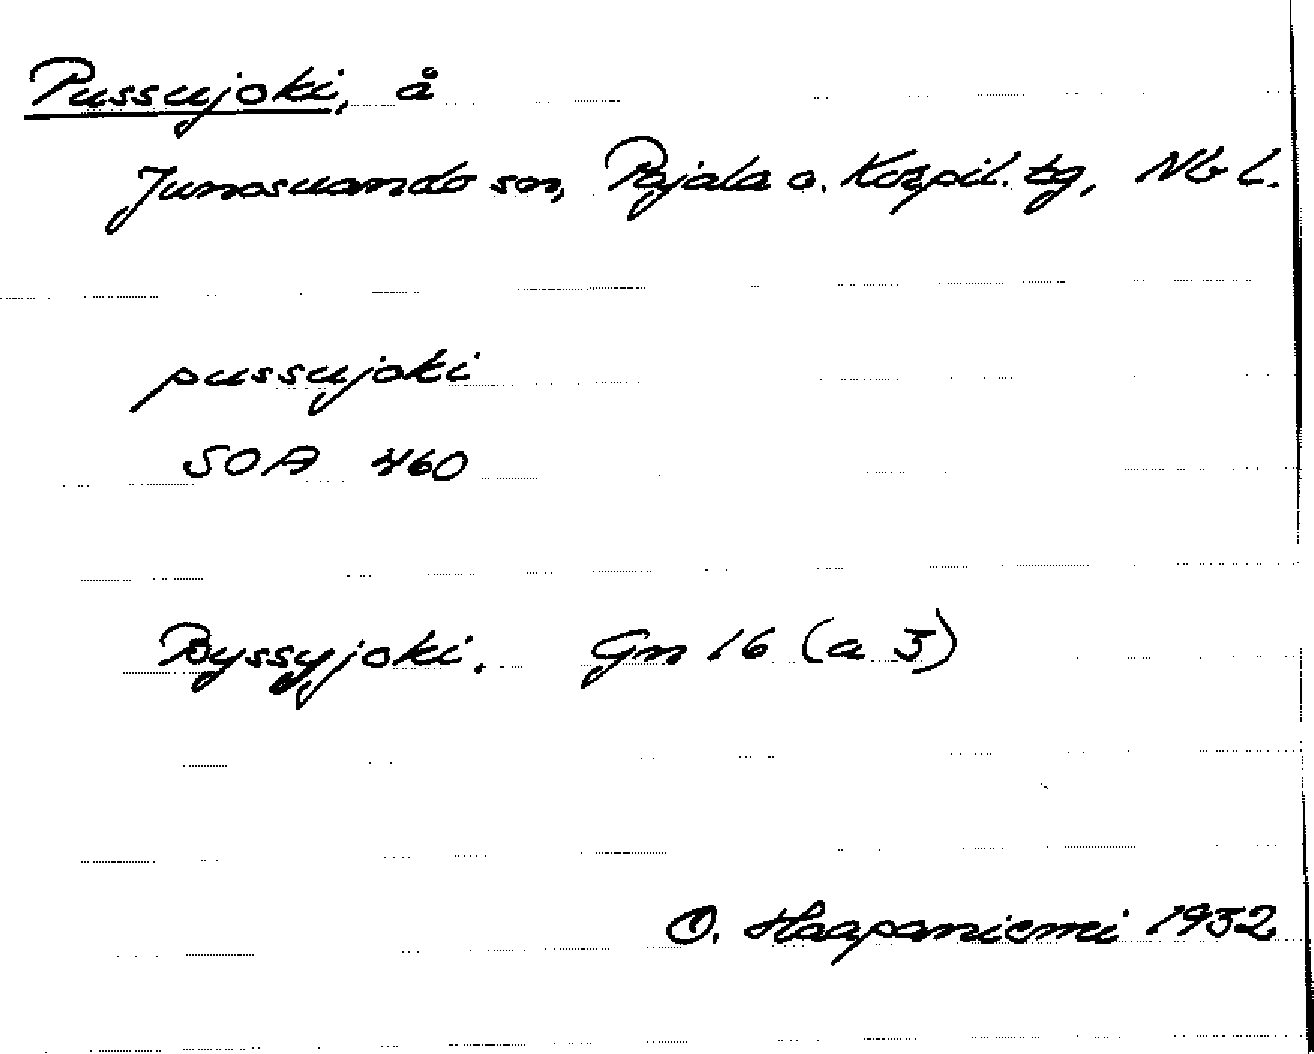 Pussujoki, å
Junosuando sn, Pajala o. Korpil. tg, Nb l.
pussujoki
SOA 460
Pyssyjoki. Gn 16 (a 5)
O. Haapaniemi 1932